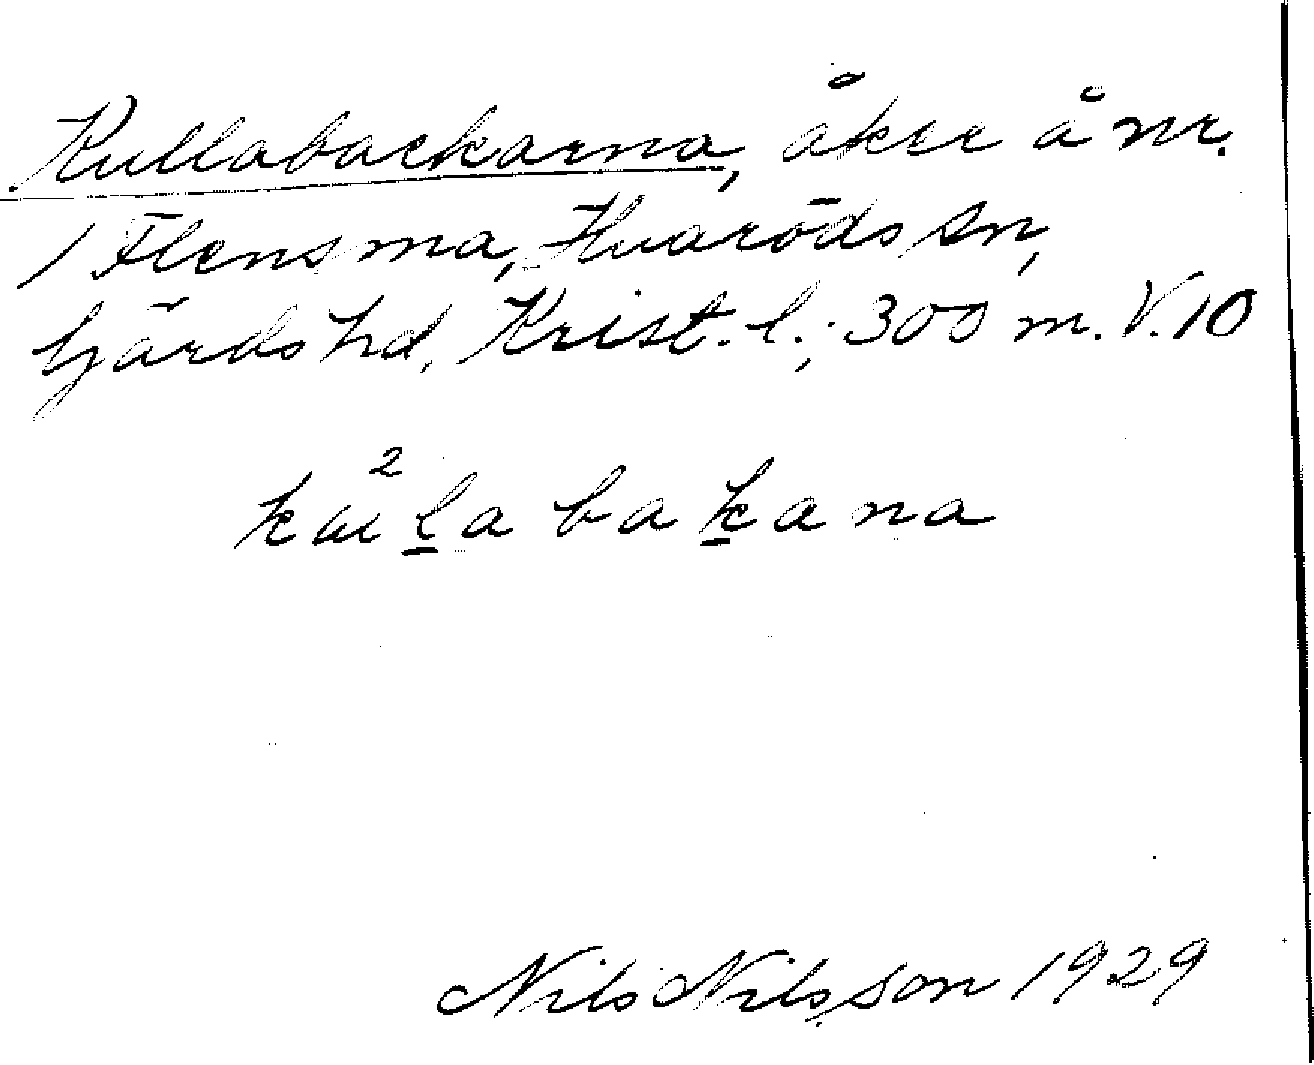 Kullabackarna, åker å nr.
1 Flensma, Hvaröds sn,
Gärds hd, Krist. l.; 300 m. V. 10
2
kulabakana
Nils Nilsson 1929